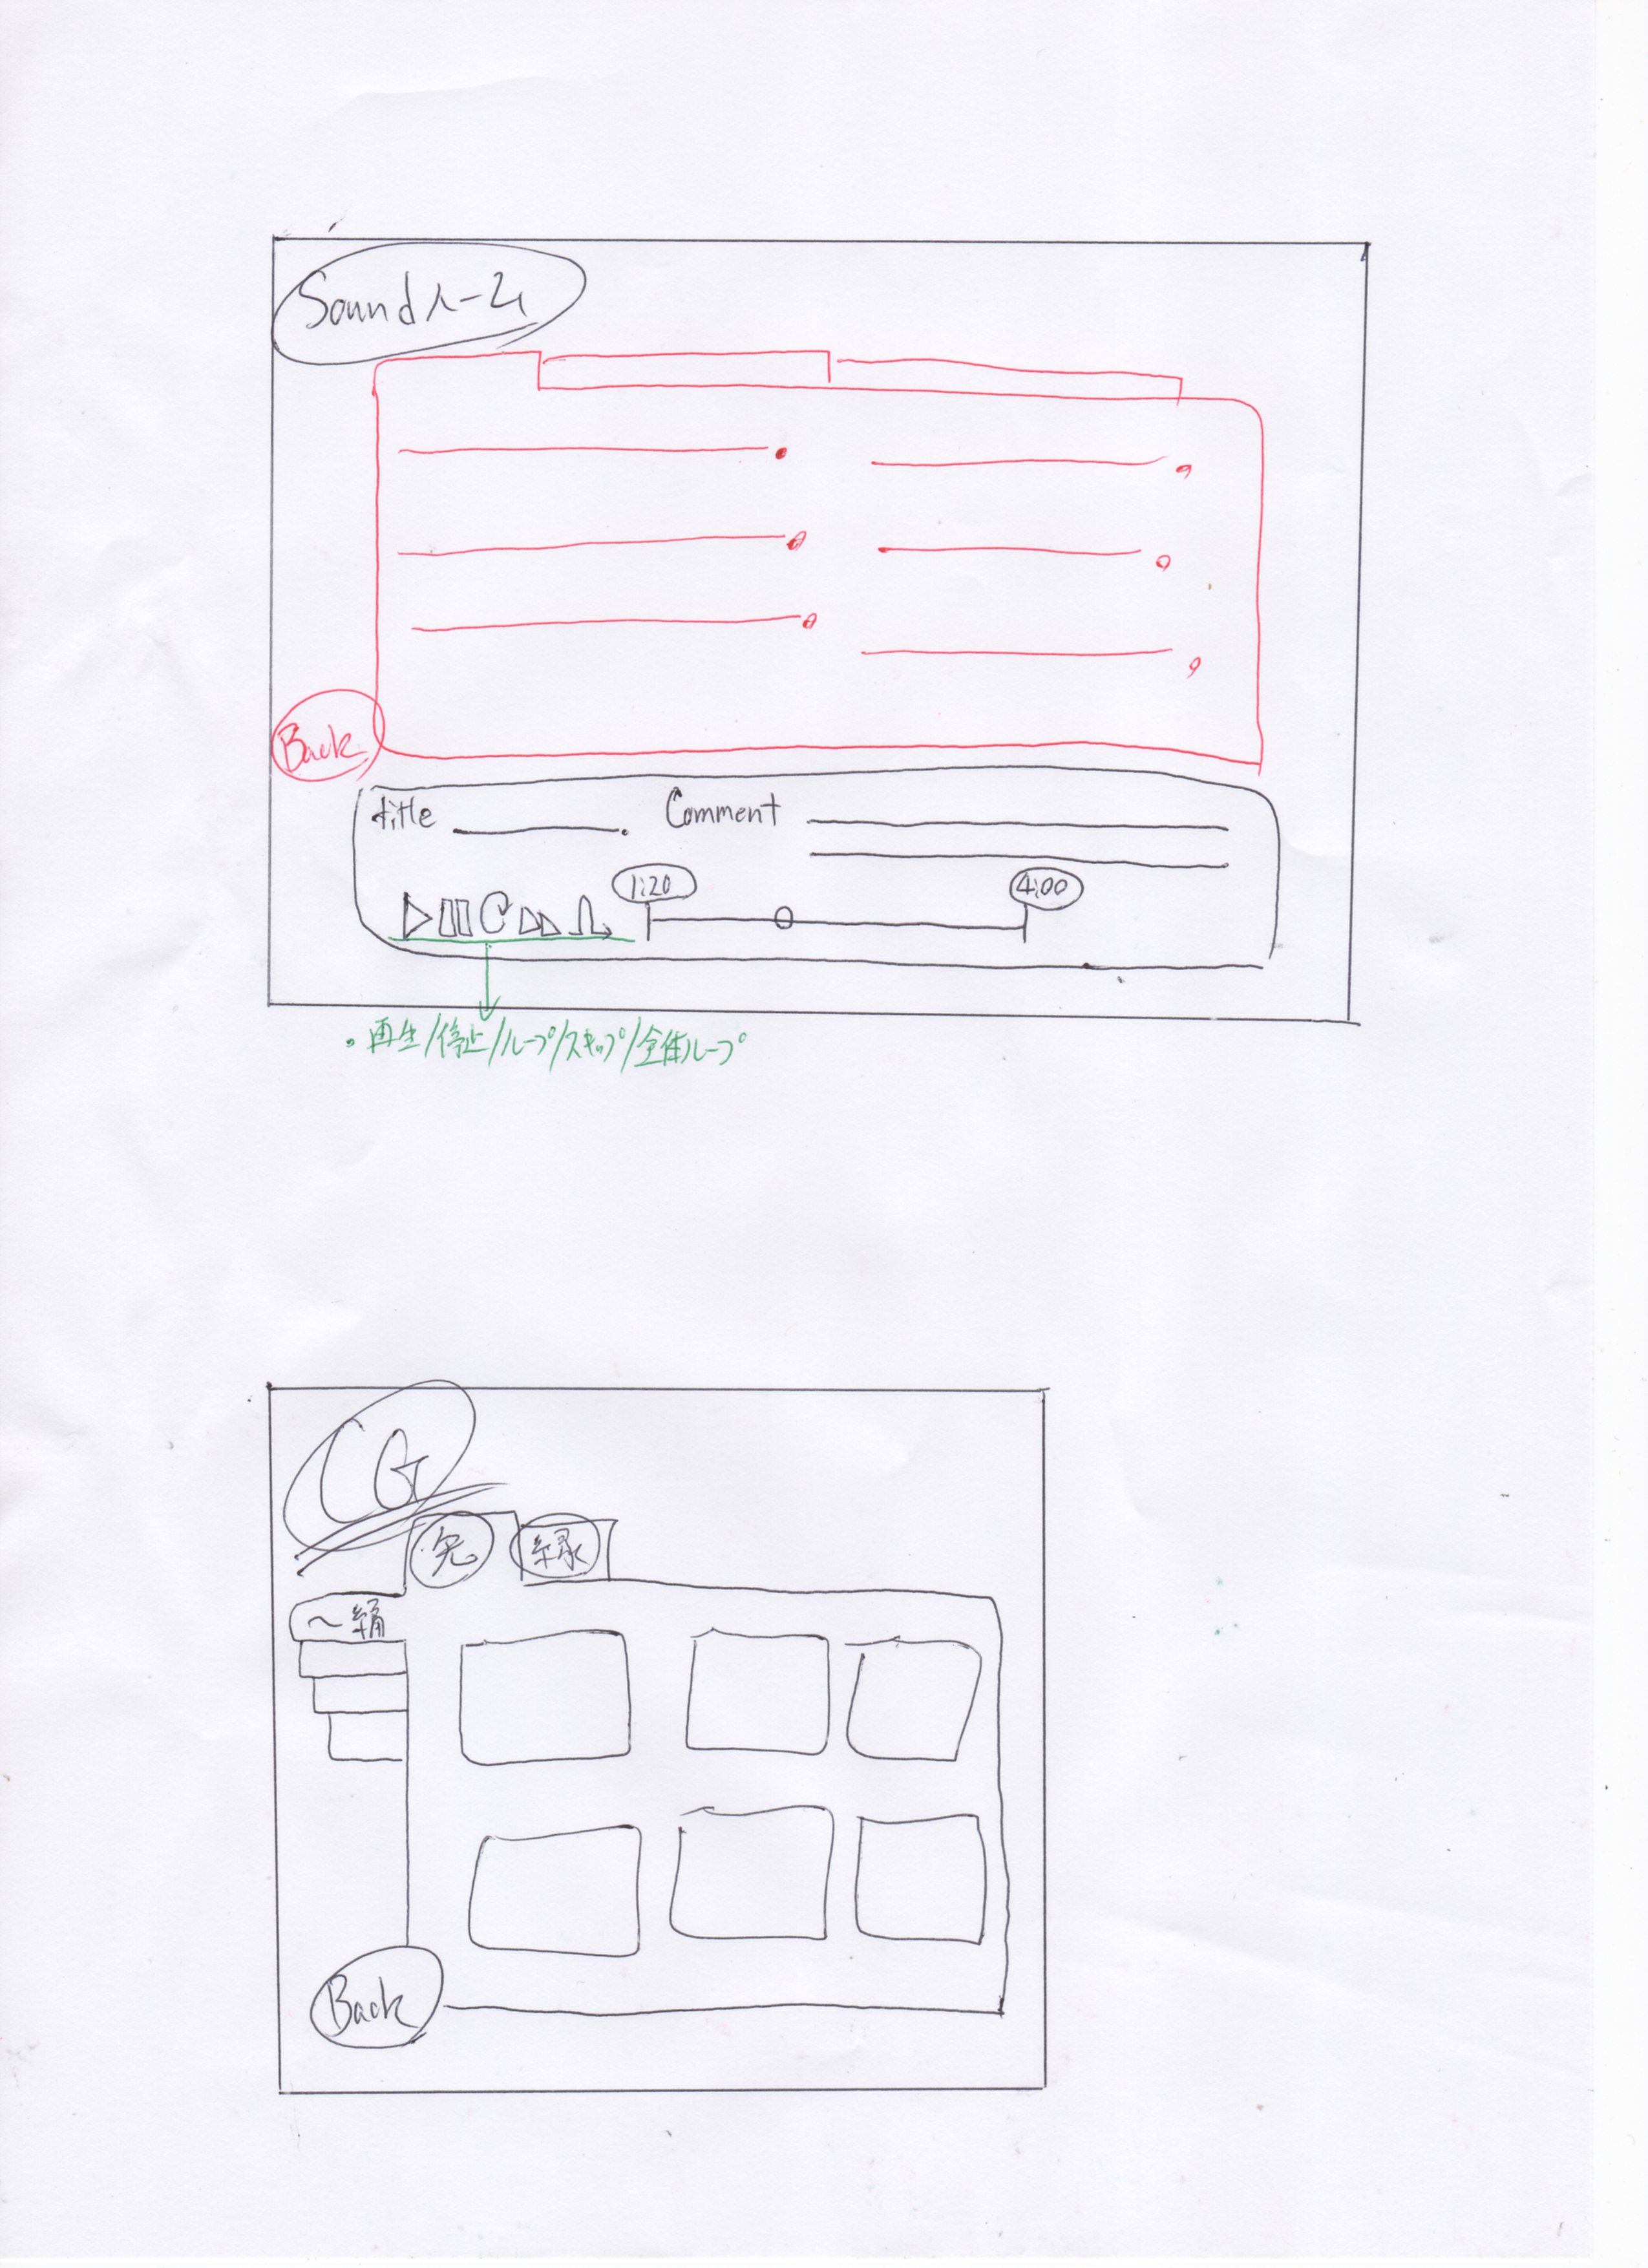 Soundル-ム
Back
title
Comment
1:20
4:00
・再生/停止/ループ/スキップ/全体ループ
CG
縁
～編
Back